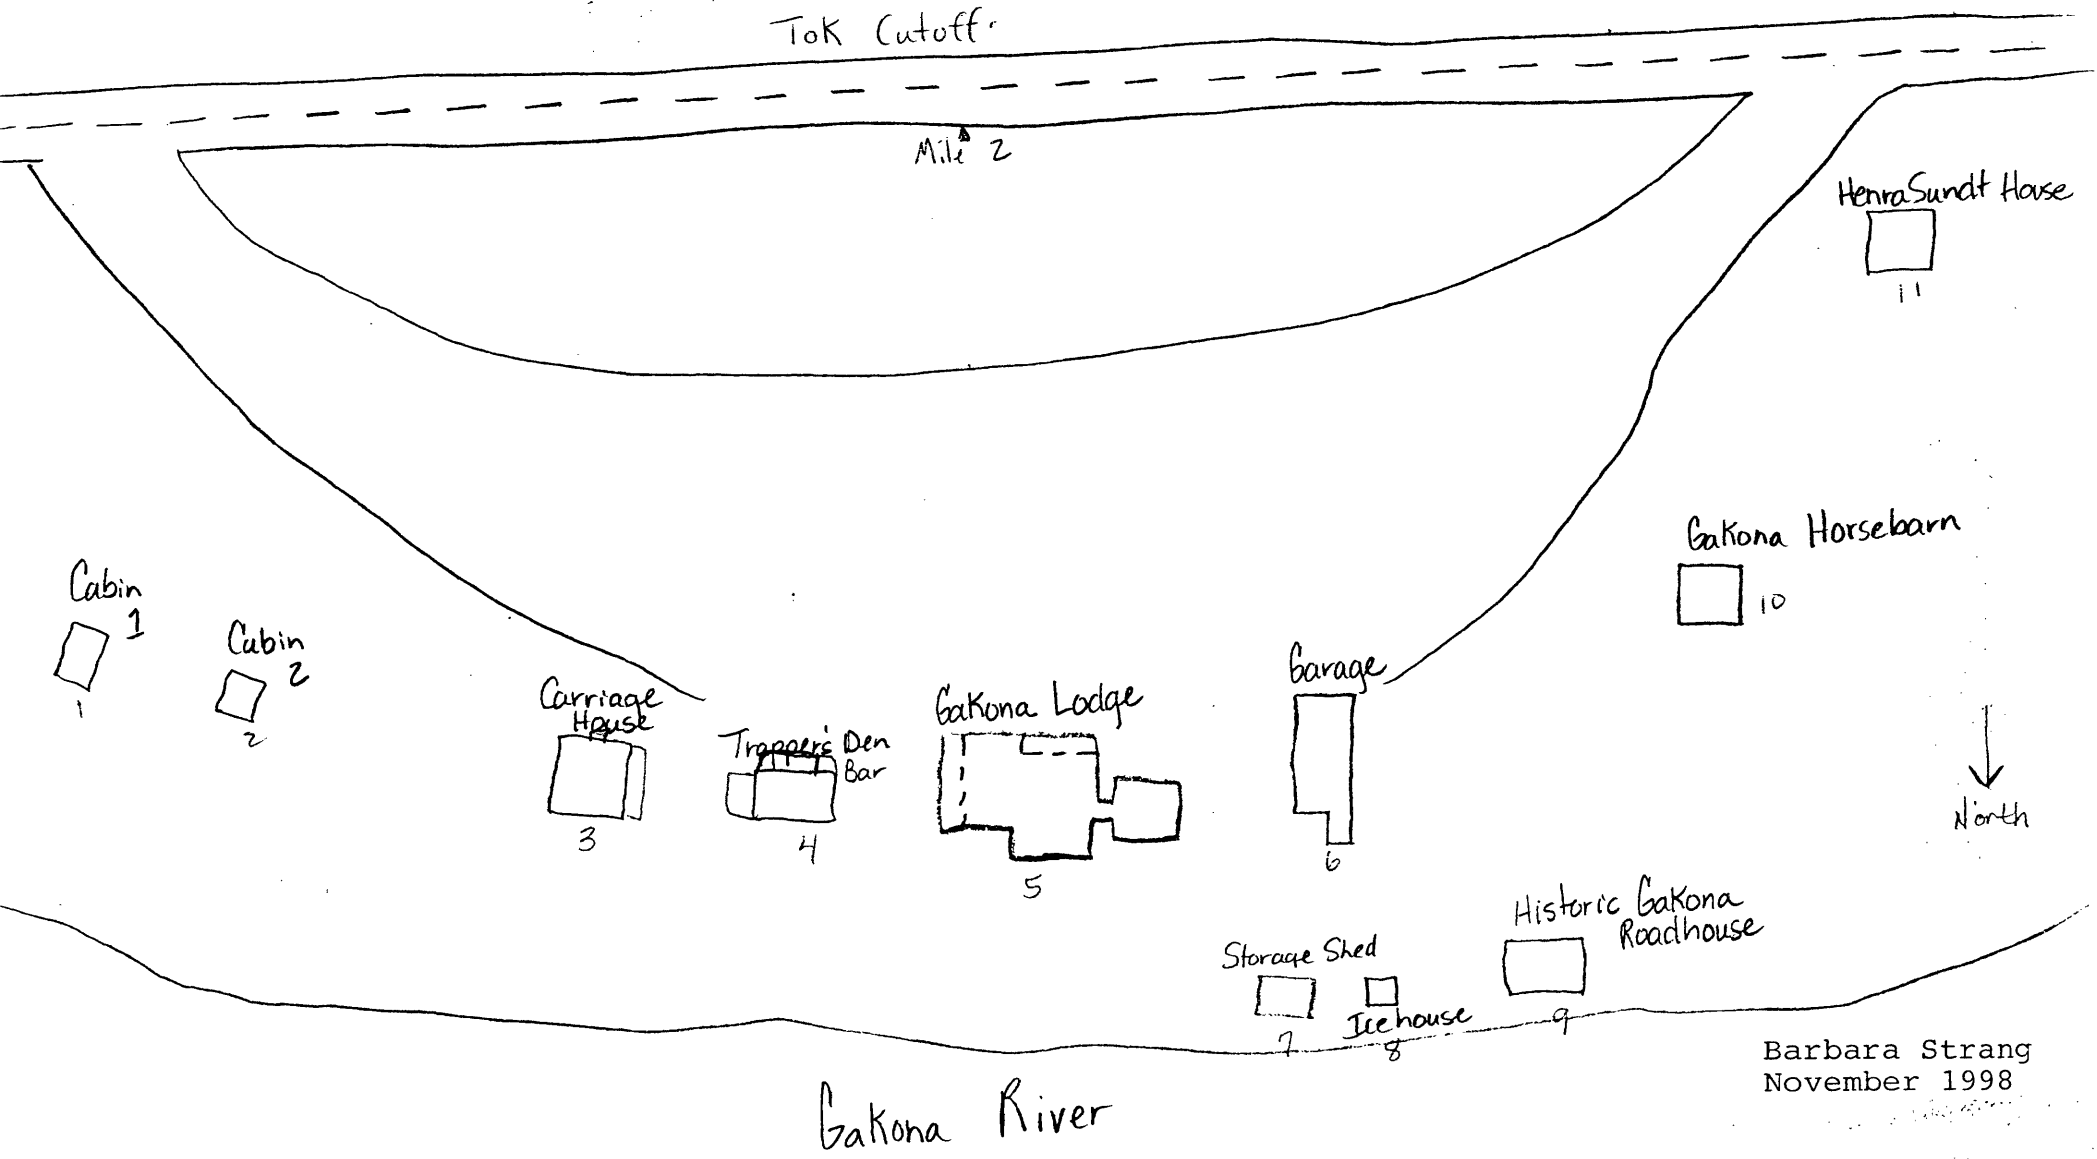 Tok Cutoff
Mile 2
Henra Sundt House
11
Gakona Horsebarn
10
Cabin
1
1
Cabin
2
2
Carriage
House
3
Trapper's Den
Bar
4
Gakona Lodge
5
Garage
6
North
Historic Gakona
Roadhouse
9
Storage Shed
7
Icehouse
8
Barbara Strang
November 1998
Gakona River